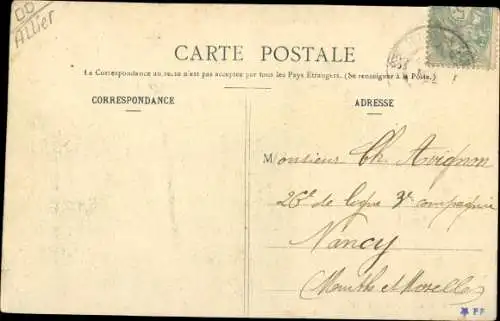 DD
Allier
CARTE POSTALE
La Correspondance au recto n'est pas acceptée par tous les Pays Étrangers. (Se renseigner à la Poste.)
CORRESPONDANCE
ADRESSE
Monsieur Ch. Avignon
26e de ligne 3e compagnie
Nancy
Meurthe et Moselle
PF